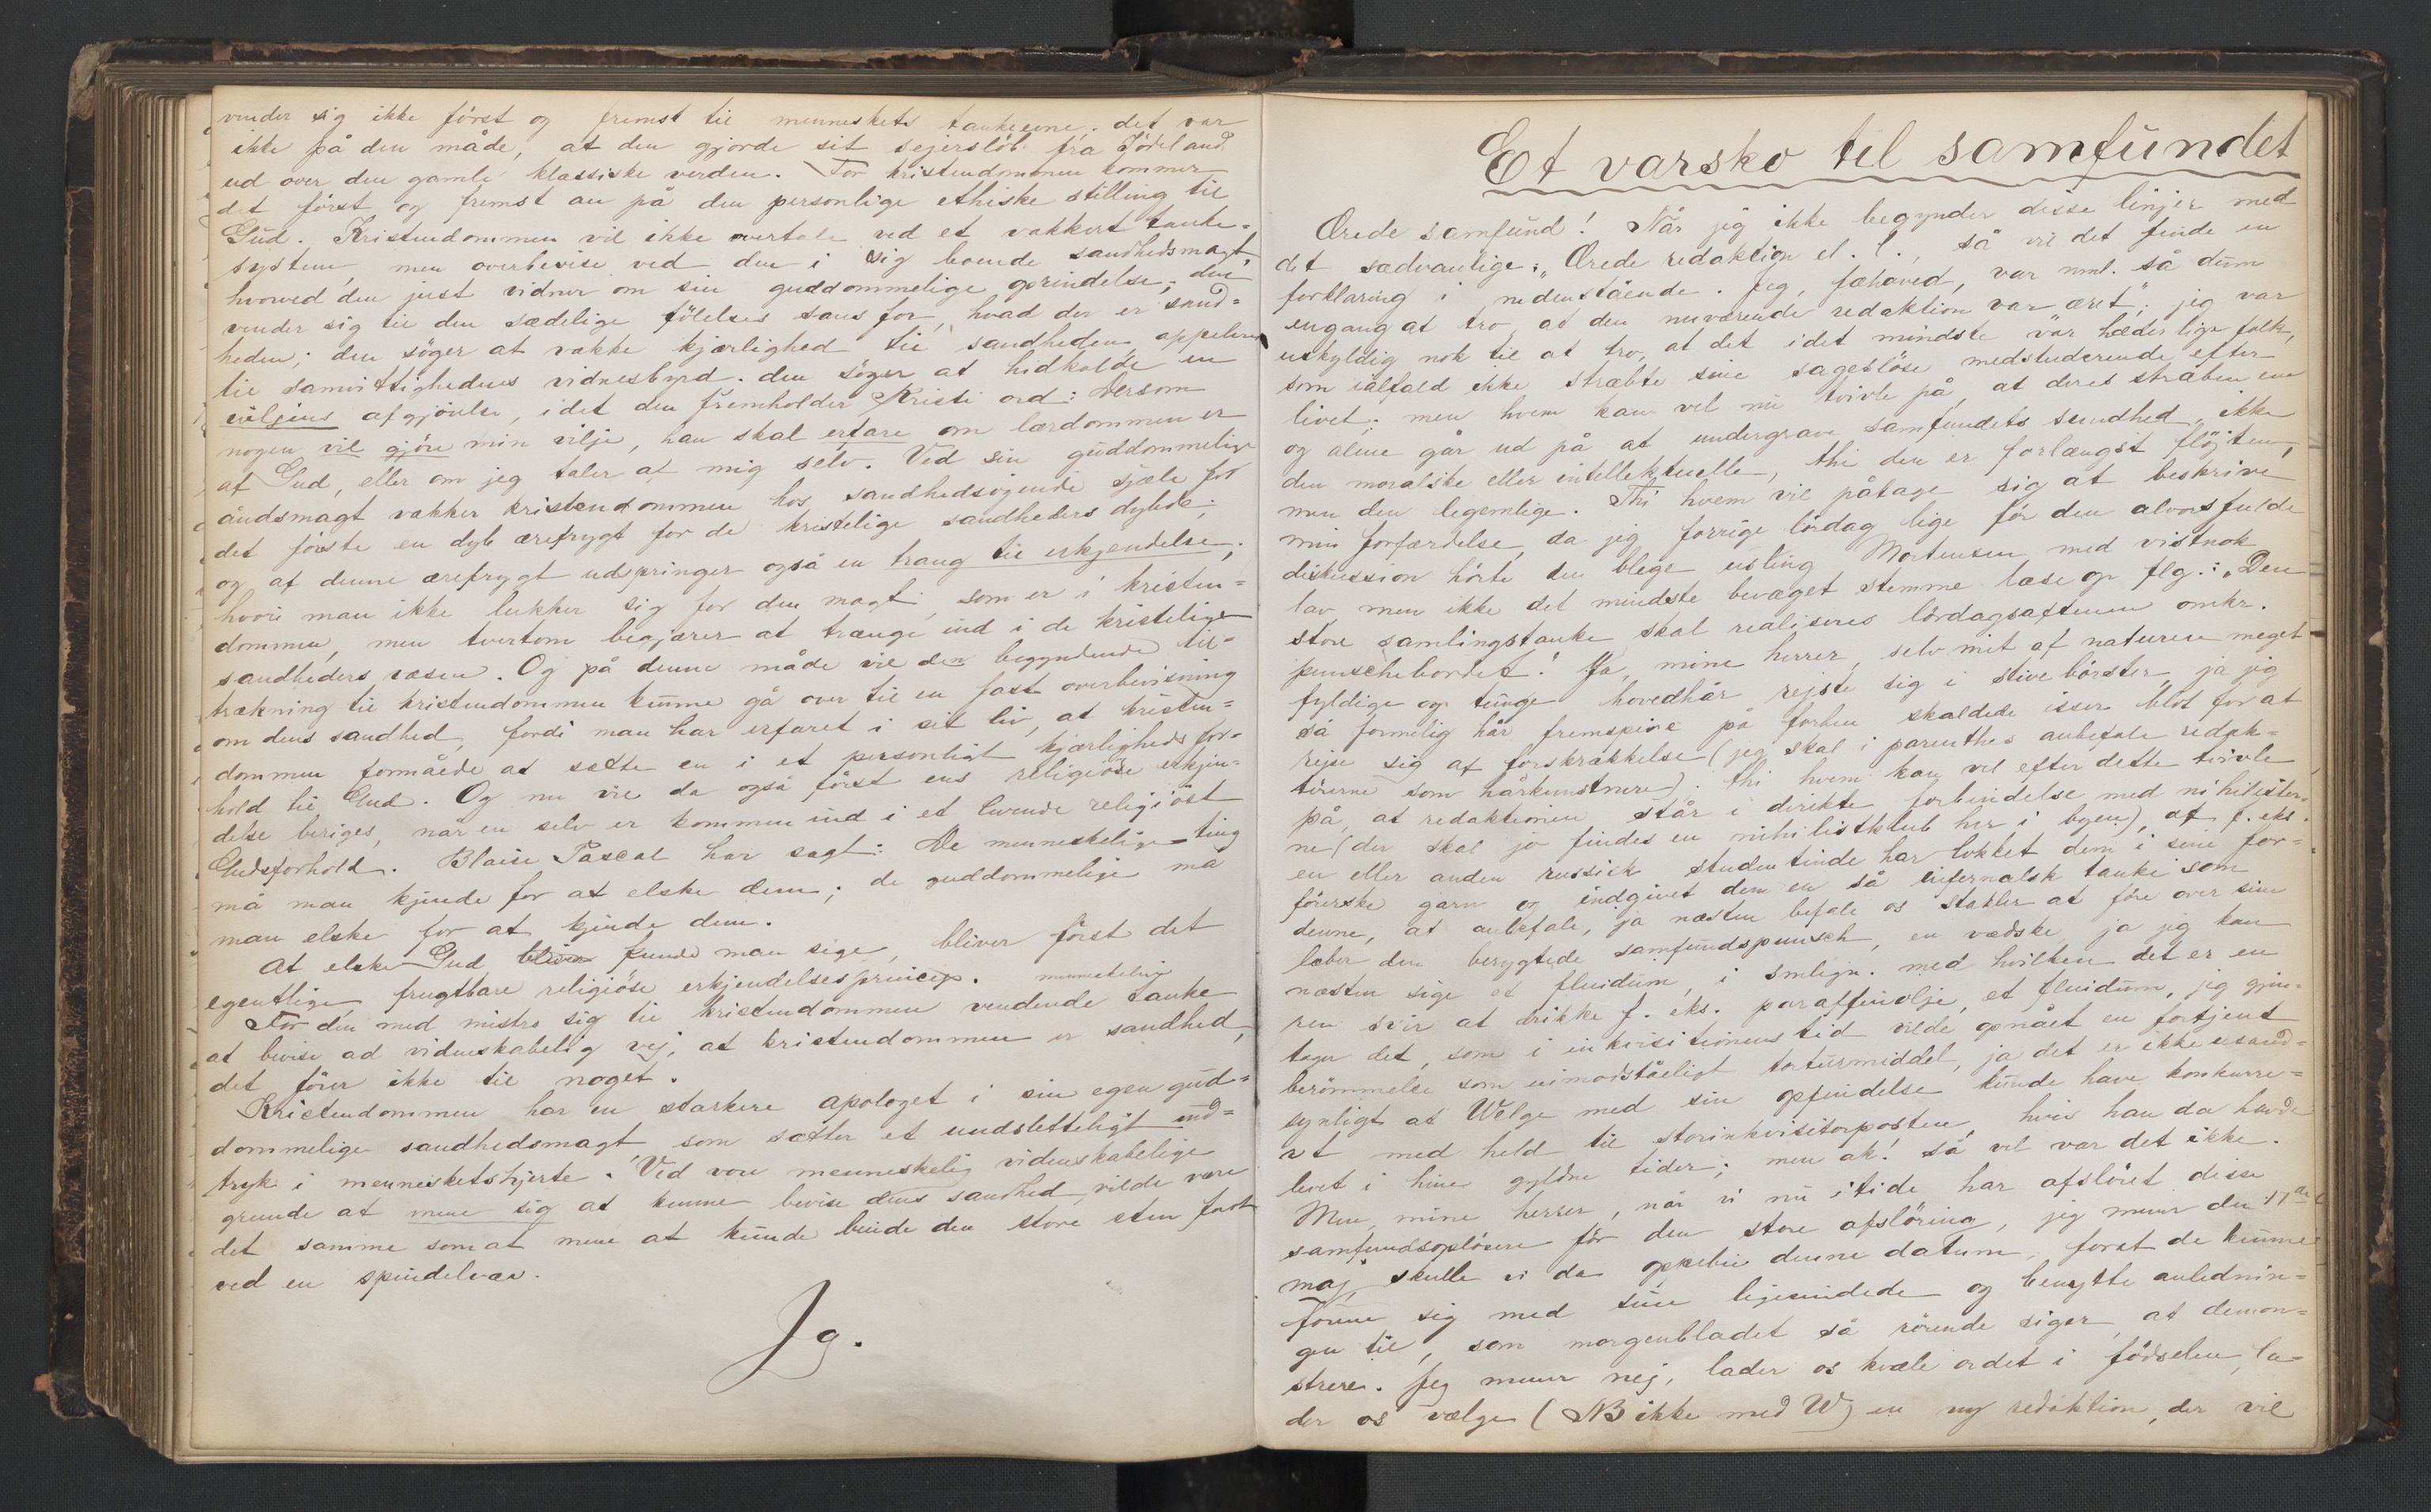 vender sig ikke först og fremst til menneskets tankeevne. det var
ikke på den måde, at den gjorde sit sejerslöb fra Jödeland
ud over den gamle klassiske verden. For kristendommen kommer
det först og fremst an på den personlige ethiske stilling til
Gud. Kristendommen vil ikke overtale ved et vakkert tanke=
system, men overbevise ved den i sig boende sandhedsmagt,
hvorved den just vidner om sin guddommelige oprindelse; den
vender sig til den sædelige fölelses sans for, hvad der er sand=
heden; den söger at vække kjærlighed til sandheden, appelerer
til samvittighedens vidnesbyrd. den söger at hidkalde en
viljens afgjörelse, idet den fremholder Kristi ord: Dersom
nogen vil gjöre min vilje, han skal erfare om lærdommen er
af Gud, eller om jeg taler af mig selv. Ved sin guddommelige
åndsmagt vækker kristendommen hos sandhedsögende sjæle for
det förste en dyb ærefrygt for de kristelige sandheders dybde;
og af denne ærefrygt udspringer også en trang til erkjendelse;
hvori man ikke lukker sig for den magt, som er i kristen=
dommen, men tvertom begjærer at trænge ind i de kristelige
sandheders væsen. Og på denne måde vil den begyndende til=
trækning til kristendommen kunne gå over til en fast overbevisning
om dens sandhed, fordi man har erfaret i sit liv, at kristen=
dommen formåede at sætte en i et personligt kjærligheds for=
hold til Gud. Og nu vil da også först ens religiöse erkjen=
delse beriges, når en selv er kommen ind i et levende religiöst
Gudsforhold. Blaise Pascal har sagt: De menneskelige ting
må man kjende for at elske dem; de guddommelige må
man elske for at kjende dem.
At elske Gud bliver kunde man sige, bliver först det
egentlige, frugtbare religiöse erkjendelsesprincip.
For den med mistro sig til kristendommen vendende menneskelige tanke
at bevise ad videnskabelig vej, at kristendommen er sandhed,
det förer ikke til noget.
Kristendommen har en stærkere apologet i sin egen gud=
dommelige sandhedsmagt, som sætter et uudsletteligt ind=
tryk i menneskets hjerte. Ved vore menneskelig videnskabelige
grunde at mene sig at kunne bevise dens sandhed, vilde være
det samme som at mene at kunde binde den store sten fast
ved en spindelvæv.
Jg.
Et varsko til samfundet
Ærede samfund! Når jeg ikke begynder disse linjer med
det sædvanlige: "Ærede redaktion el. l., så vil det finde en
forklaring i nedenstående. Jeg, fæhoved, var nml. så dum
engang at tro, at den nuværende redaktion var æret"; jeg var
uskyldig nok til at tro, at det idet mindste var hæderlige folk,
som ialfald ikke stræbte sine sagesløse medstuderende efter
livet; men hvem kan vel nu tvivle på, at deres stræben ene
og alene går ud på at undergrave samfundets sundhed, ikke
den moralske eller intellektuelle, thi den er forlængst flöjten,
men den legemlige. Thi hvem vil påtage sig at beskrive
min forfærdelse, da jeg forrige lördag lige för den alvorsfulde
diskussion hörte den blege usling Mortensen med vistnok
lav, men ikke det mindste bevæget stemme læse op flg.: "Den
store samlingstanke skal realiseres lördagsaftenen omkr.
punschebordet! Ja, mine herrer, selv mit af naturen meget
fyldige og tunge hovedhår rejste sig i stive börster, ja jeg
så formelig hår fremspire på forhen skaldede isser blot for at
rejse sig af forskrækkelse (jeg skal i parenthes anbefale redak=
törerne som hårkunstnere). thi hvem kan vel efter dette tvivle
på, at redaktionen står i direkte forbindelse med nihilister=
ne (der skal jo findes en nihilistklub her i byen), at f. eks.
en eller anden russisk studentinde har lokket dem i sine for=
förerske garn og indgivet dem en så infernalsk tanke som
denne, at anbefale, ja næsten befale os stakler at före over sine
læber den berygtede samfundspunsch, en vædske, ja jeg kan
næsten sige et fluidum, i smlign. med hvilken det er en
ren svir at drikke f. eks. paraffinolje, et fluidum, jeg gjen=
tager det, som i inkvisitionens tid vilde opnået en fortjent
berömmelse som uimodståeligt torturmiddel, ja det er ikke usand=
synligt at Welge med sin opfindelse kunde have konkurre=
ret med held til storinkvisitorposten, hvis han da havde
levet i hine gyldne tider; men ak! så vel var det ikke.
Men, mine herrer, når vi nu itide har aflöret disse
samfundsoplösere för den store aflöring, jeg mener den 17de
maj, skulle vi da oppebie denne datum, forat de kunne
forene sig med sine ligesindede og benytte anlednin=
gen til, som morgenbladet så rörende siger, at demon=
strere. Jeg mener nej, lader os kvæle ordet i födselen, la=
der os vælge (NB ikke med W) en ny redaktion, der vil